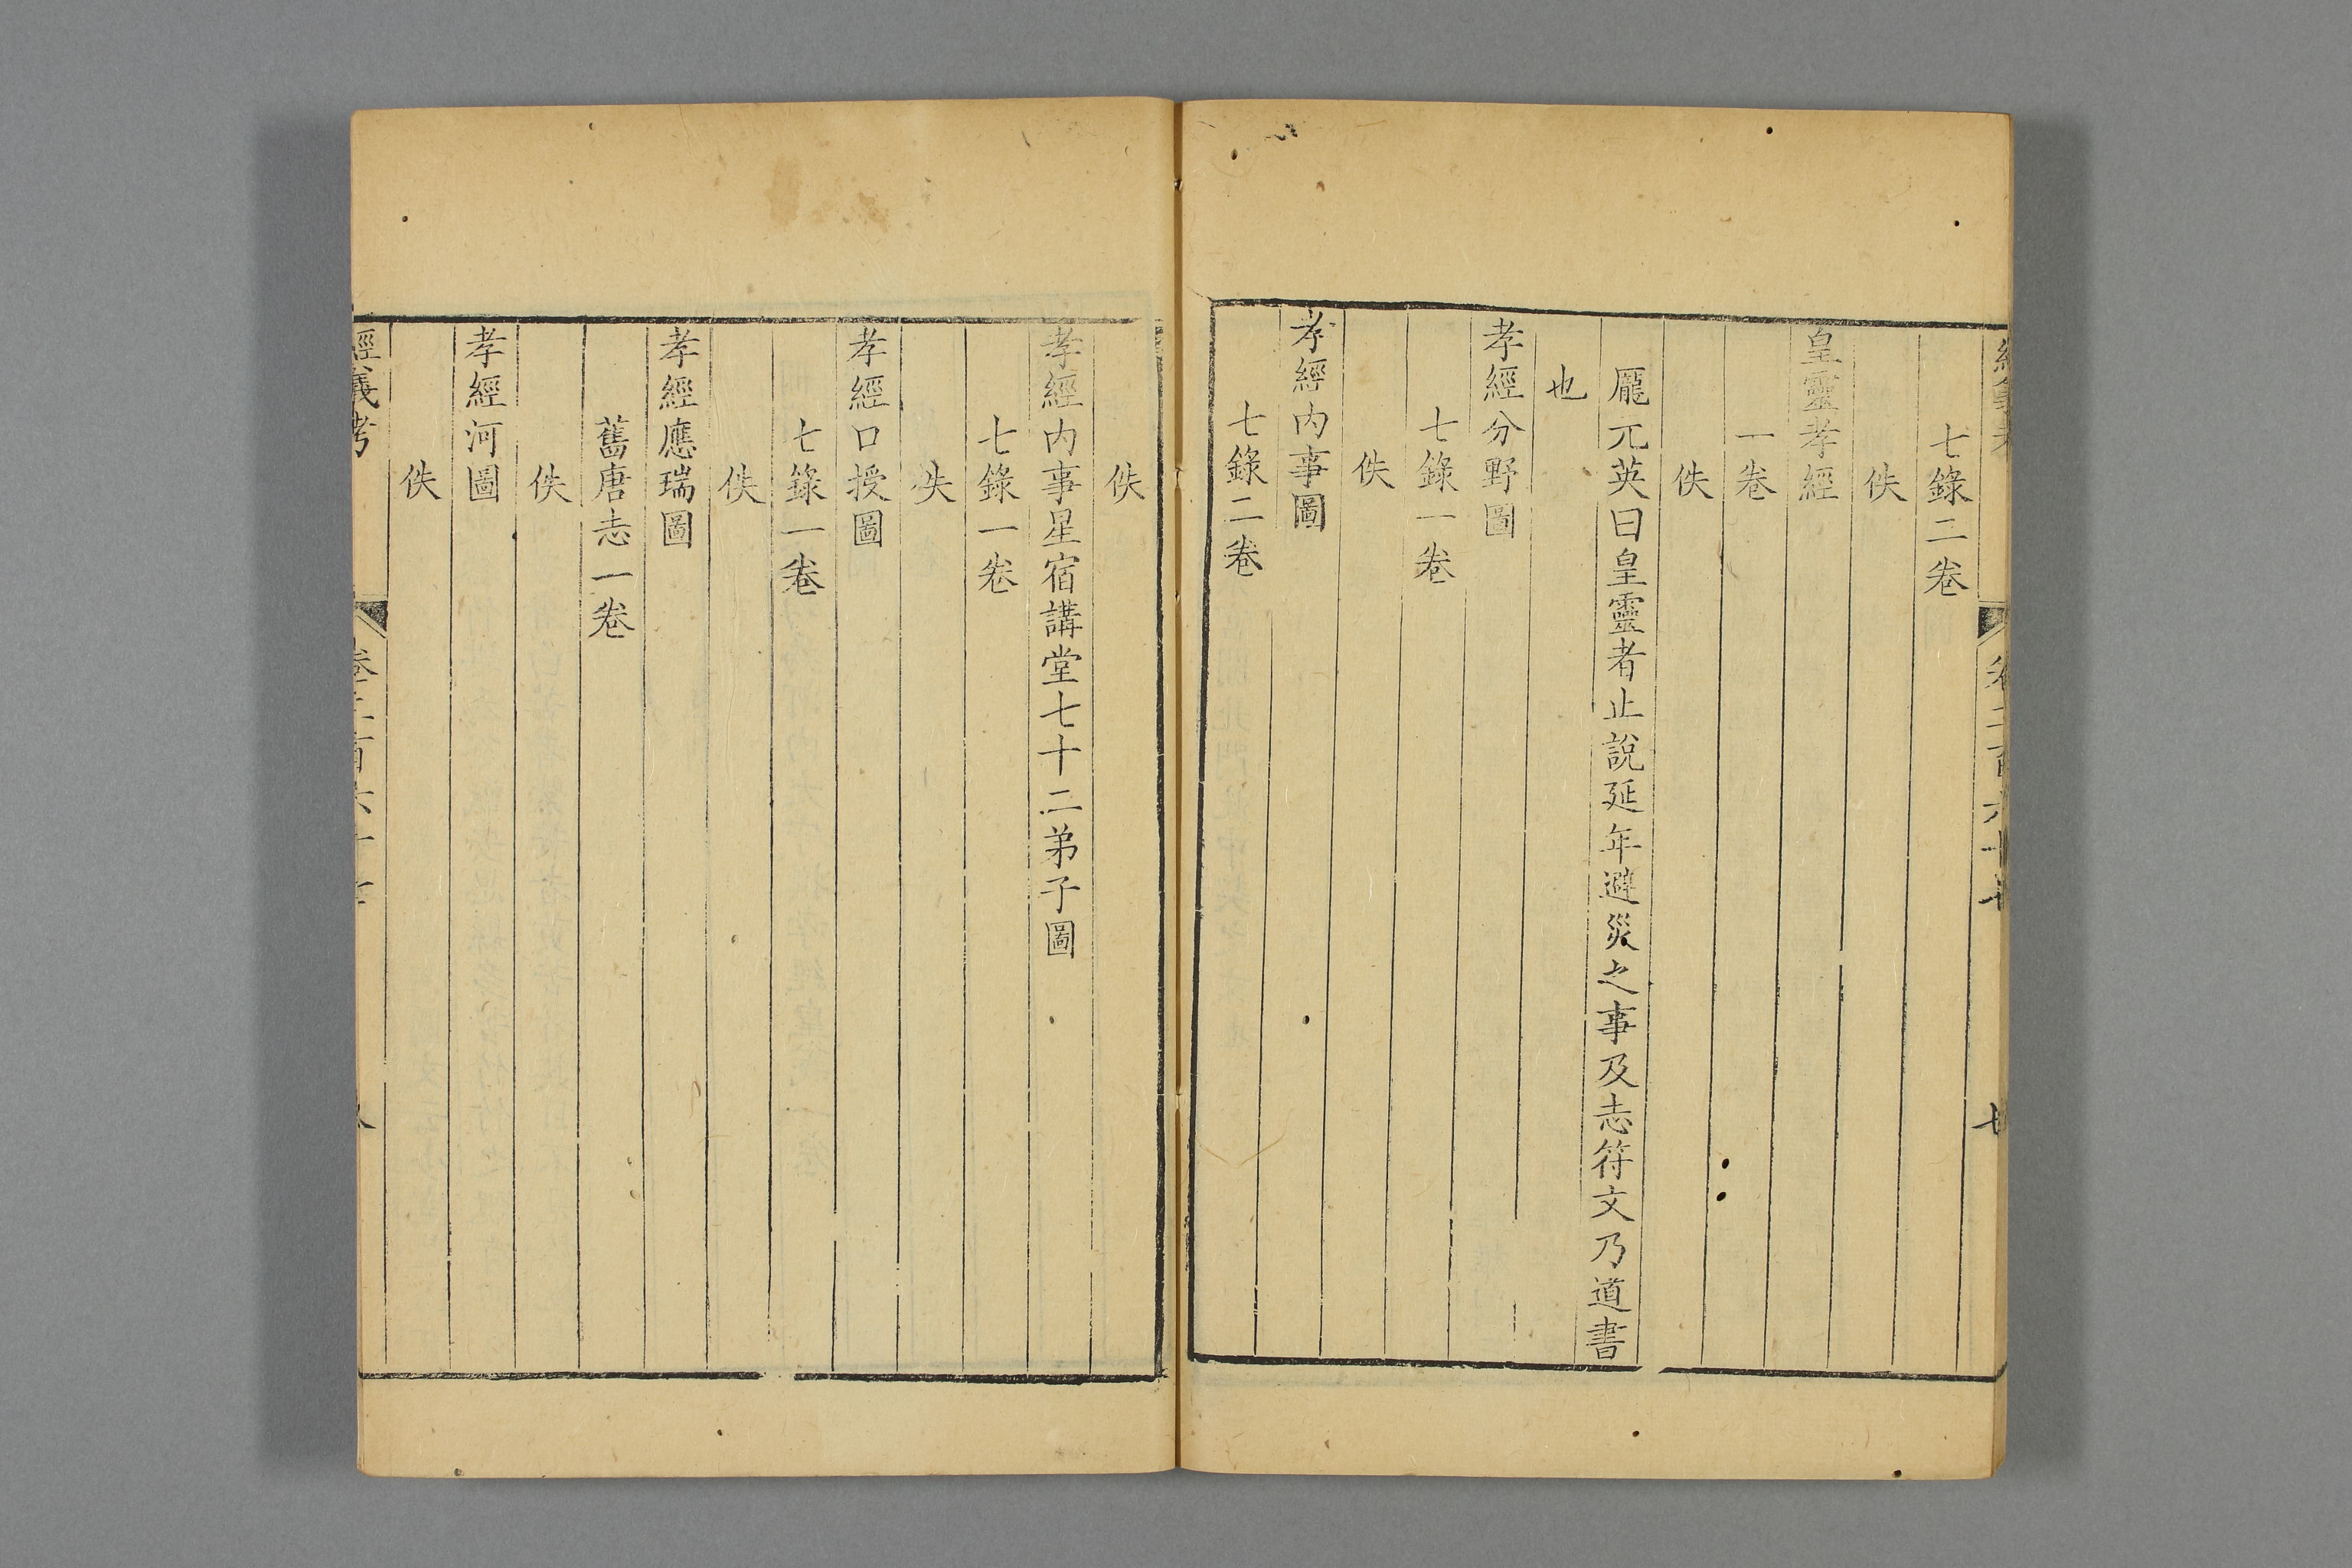 七錄二卷
佚
皇靈孝經
一卷
佚
龎兀英曰皇靈者止說延年避災之事及志符文乃道書
也
孝經分野圖
七錄一卷
佚
孝經内事圖
七錄二卷
佚
孝經内事星宿講堂七十二弟子圖
七錄一卷
佚
孝經口授圖
七錄一卷
佚
孝經應瑞圖
舊唐志一卷
佚
孝經河圖
佚
經義考